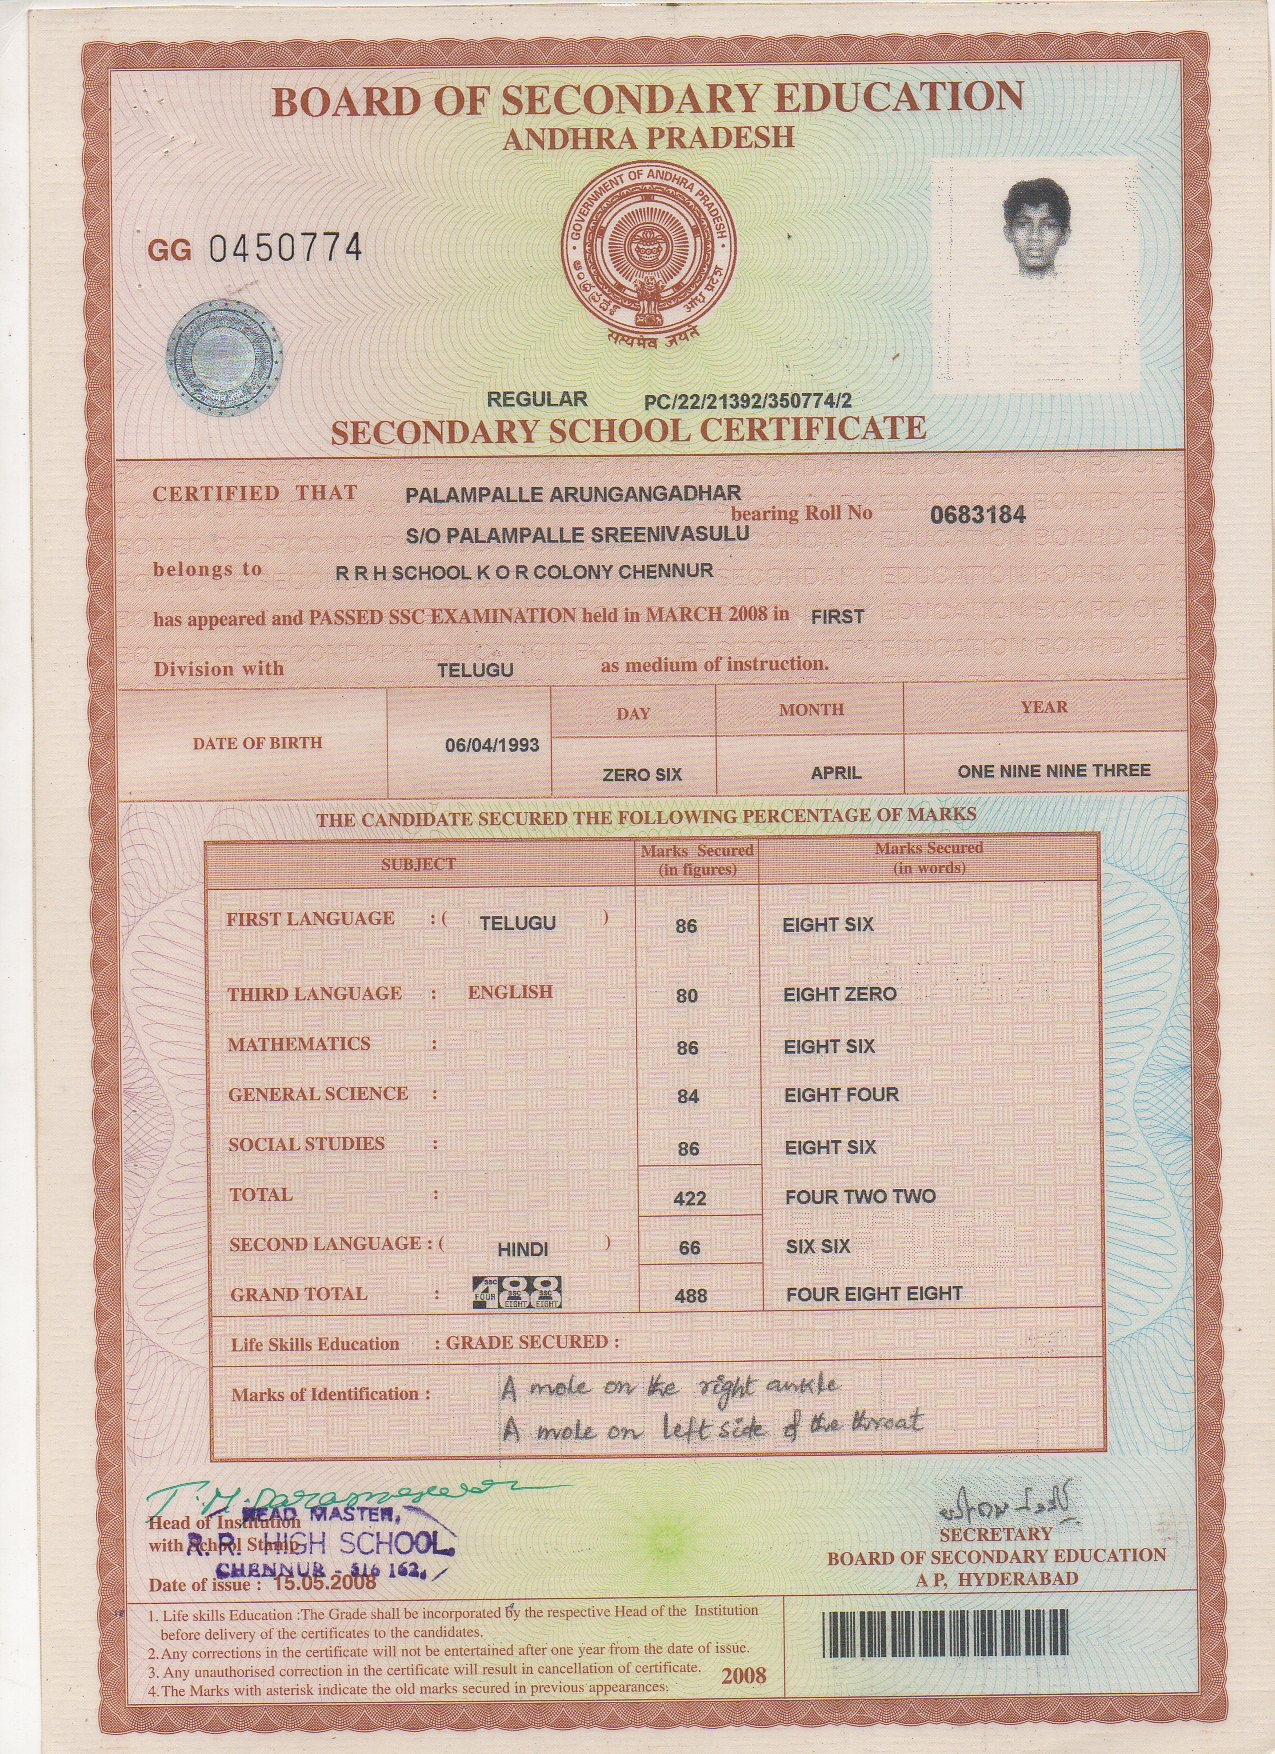 BOARD OF SECONDARY EDUCATION
ANDHRA PRADESH
GOVERNMENT OF ANDHRA PRADESH
ఆంధ్రప్రదేశ్
सत्यमेव जयते
GG 0450774
REGULAR PC/22/21392/350774/2
SECONDARY SCHOOL CERTIFICATE
CERTIFIED THAT PALAMPALLE ARUNGANGADHAR
bearing Roll No 0683184
S/O PALAMPALLE SREENIVASULU
belongs to R R H SCHOOL K O R COLONY CHENNUR
has appeared and PASSED SSC EXAMINATION held in MARCH 2008 in FIRST
Division with TELUGU as medium of instruction.
DAY MONTH YEAR
DATE OF BIRTH 06/04/1993
ZERO SIX APRIL ONE NINE NINE THREE
THE CANDIDATE SECURED THE FOLLOWING PERCENTAGE OF MARKS
SUBJECT Marks Secured (in figures) Marks Secured (in words)
FIRST LANGUAGE : ( TELUGU ) 86 EIGHT SIX
THIRD LANGUAGE : ENGLISH 80 EIGHT ZERO
MATHEMATICS : 86 EIGHT SIX
GENERAL SCIENCE : 84 EIGHT FOUR
SOCIAL STUDIES : 86 EIGHT SIX
TOTAL : 422 FOUR TWO TWO
SECOND LANGUAGE : ( HINDI ) 66 SIX SIX
GRAND TOTAL : 488 488 FOUR EIGHT EIGHT
Life Skills Education : GRADE SECURED :
Marks of Identification : A mole on the right ankle
A mole on left side of the throat
HEAD MASTER,
Head of Institution
R. R. HIGH SCHOOL,
with School Stamp
CHENNUR - 516 162,
Date of issue : 15.05.2008
SECRETARY
BOARD OF SECONDARY EDUCATION
A P, HYDERABAD
1. Life skills Education :The Grade shall be incorporated by the respective Head of the Institution
before delivery of the certificates to the candidates.
2. Any corrections in the certificate will not be entertained after one year from the date of issue.
3. Any unauthorised correction in the certificate will result in cancellation of certificate.
4. The Marks with asterisk indicate the old marks secured in previous appearances.
2008